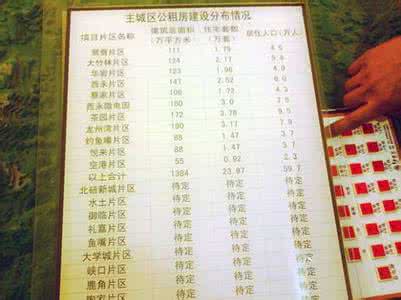 主城区公租房建设分布情况
项目片区名称 建筑面积(万平方米) 住宅套数(万套) 居住人口(万人)
片区 111 1.79
大竹林片区 124 2.17
华岩片区 123 1.96 4.9
西永片区 147 2.52
蔡家片区
西永微电园 180
茶园片区 172 3.78 9.5
龙洲湾片区 190 3.17 7.9
钓鱼嘴片区 88 1.47 3.7
悦来片区 88 1.47 3.7
空港片区 55 0.92 2.3
以上合计 1384 23.87 59.7
北碚新城片区 待定 待定 待定
水土片区 待定 待定 待定
御临片区 待定 待定 待定
礼嘉片区 待定 待定 待定
鱼嘴片区 待定 待定 待定
大学城片区 待定 待定 待定
峡口片区 待定 待定 待定
鹿角片区 待定 待定 待定
陶家片区 待定 待定